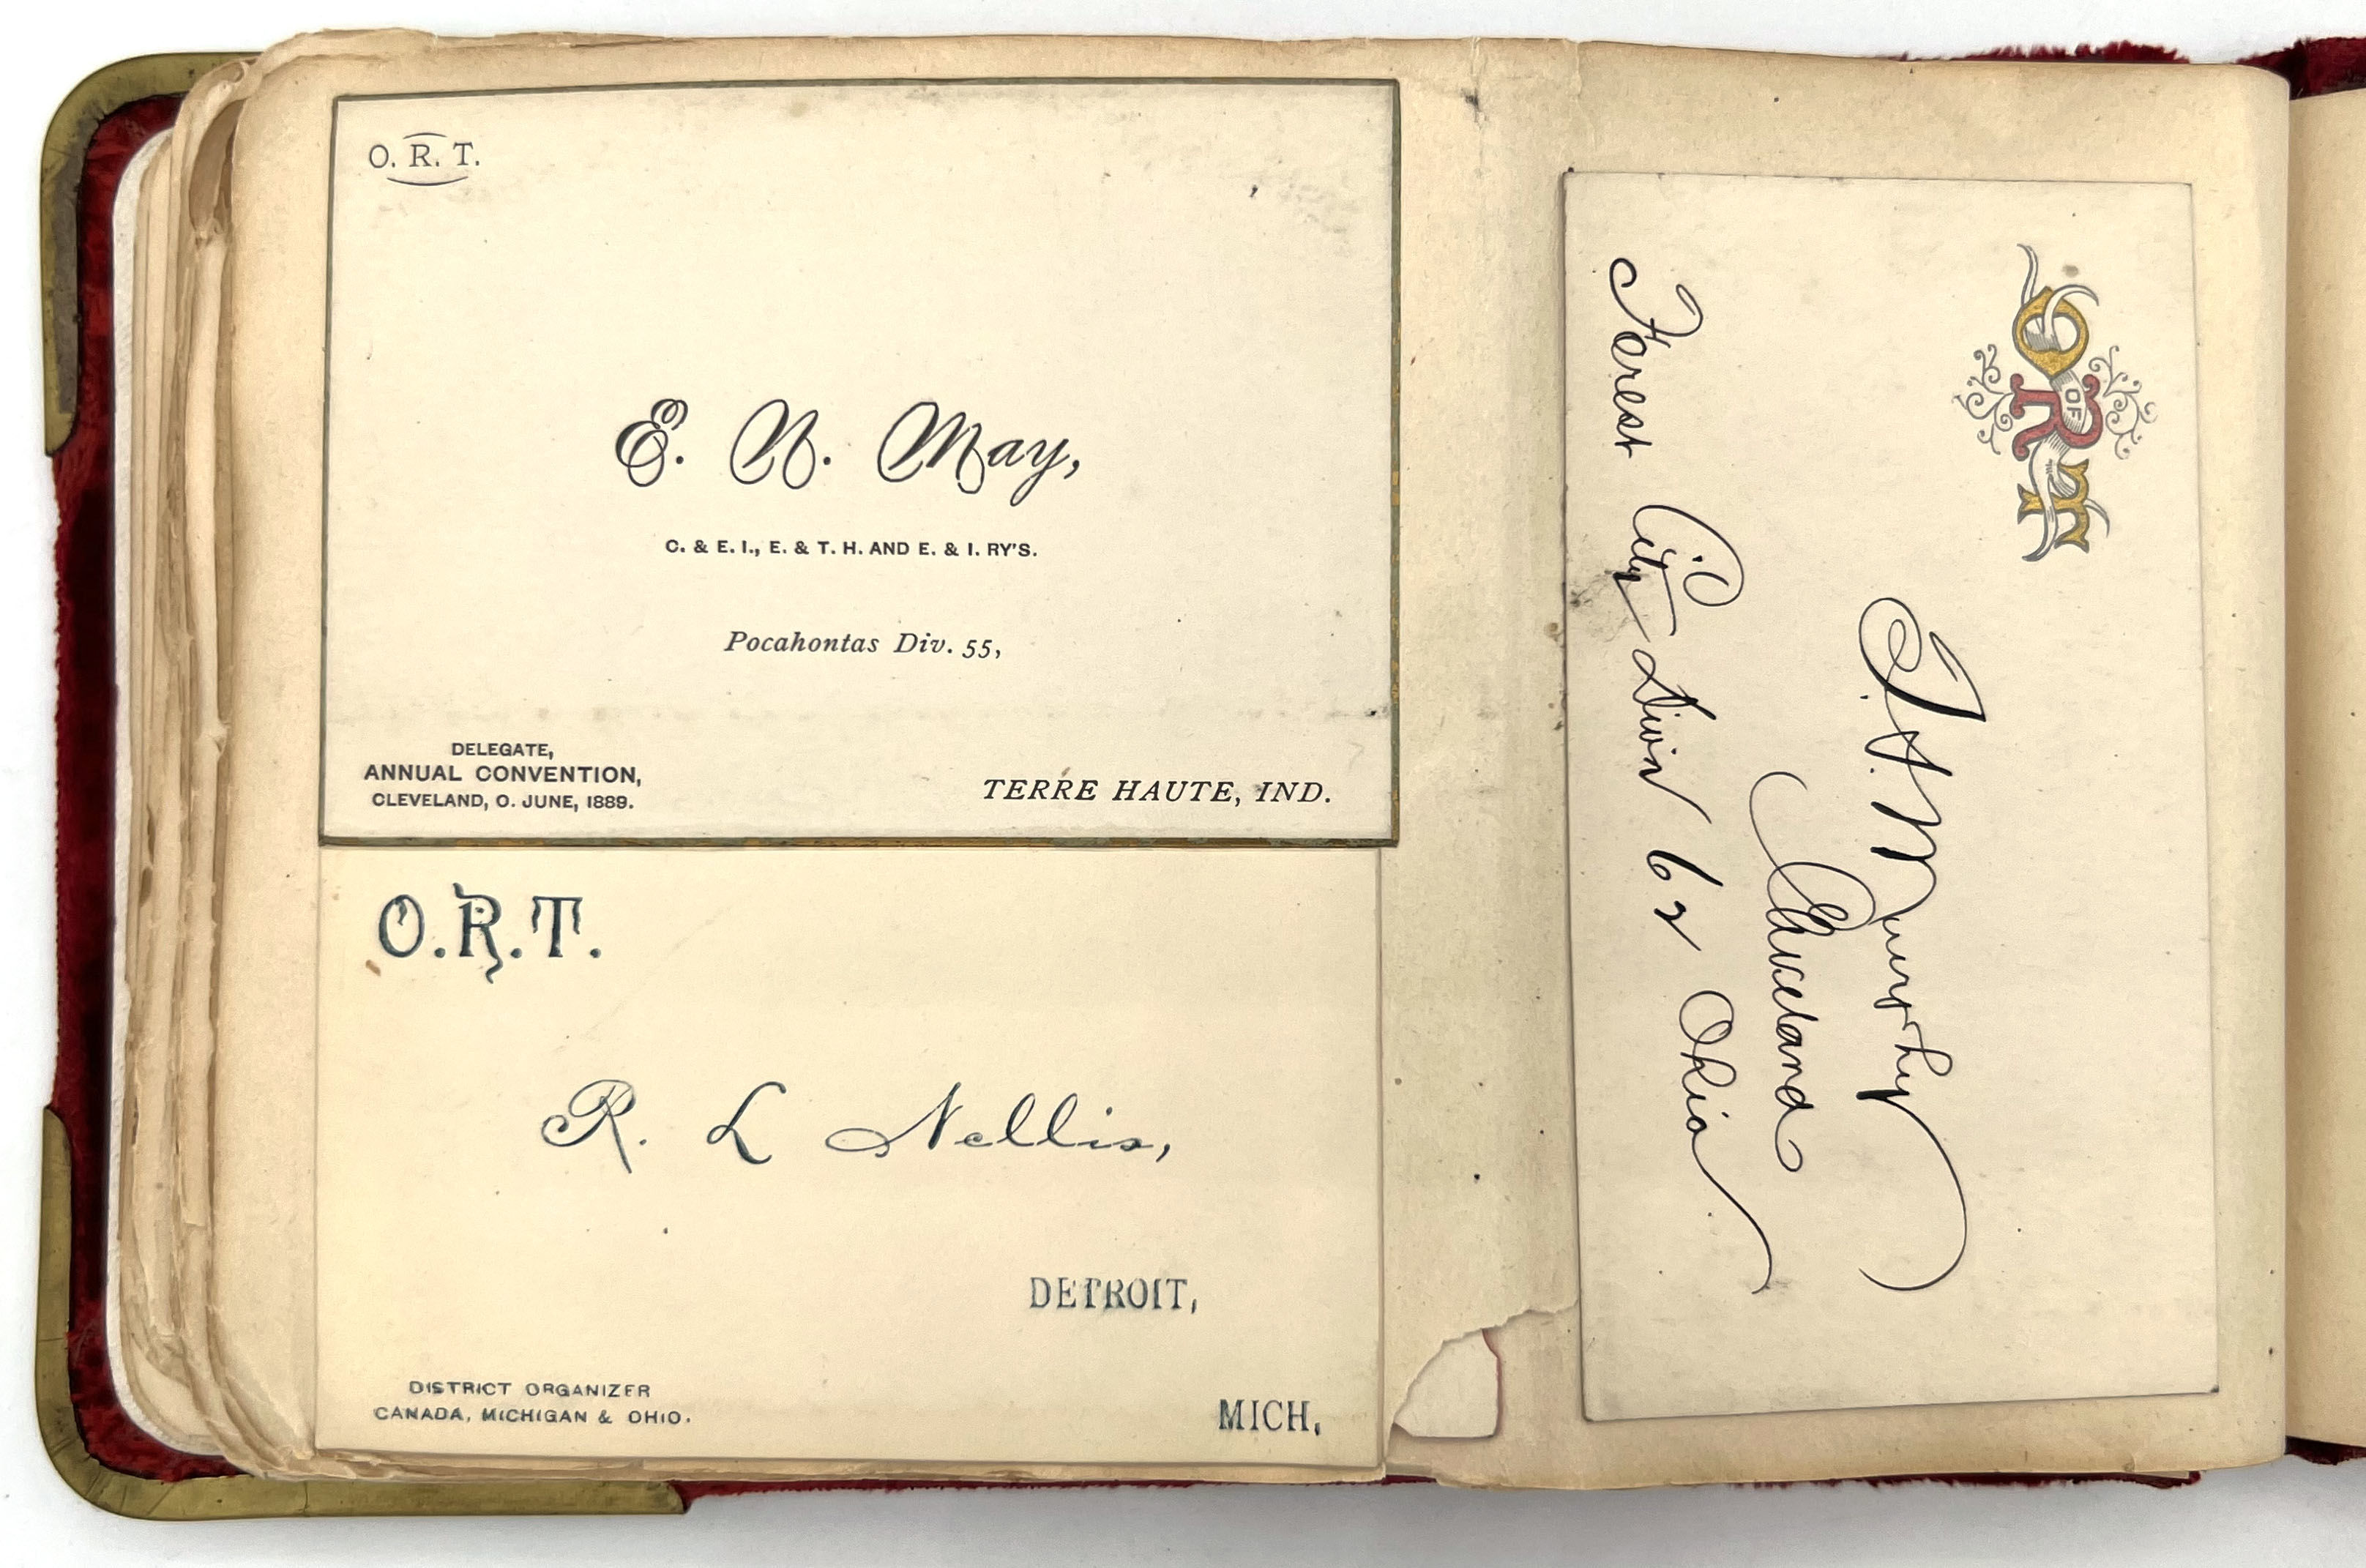 O. R. T.
E. N. May,
C. & E. I., E. & T. H. AND E. & I. RY'S.
Pocahontas Div. 55,
DELEGATE,
ANNUAL CONVENTION,
CLEVELAND, O. JUNE, 1889.
TERRE HAUTE, IND.
O.R.T.
R. L Nellis,
DETROIT,
MICH,
DISTRICT ORGANIZER
CANADA, MICHIGAN & OHIO.
O OF R T
T. H. Murphy
Cleveland
Forest City Divin 62 Ohio